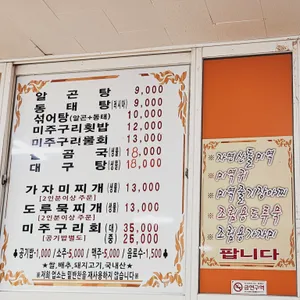 알곤탕 9,000
동태탕 9,000
섞어탕(알곤+동태) 10,000
미주구리횟밥 12,000
미주구리물회 13,000
곰국 18,000
대구탕 18,000
가자미찌개 13,000
[2인분이상 주문]
도루묵찌개 13,000
[2인분이상 주문]
미주구리회 대 35,000
[공기밥별도] 중 25,000
♣공기밥-1,000 / 소주-5,000 / 맥주-5,000 / 음료수-1,500♣
※쌀,배추,돼지고기,국내산※
※저희 업소는 잔반찬을 재사용하지 않습니다※
※자연산돌미역
※미역귀
※조림용도루묵
※조림용가자미
팝니다
금연구역